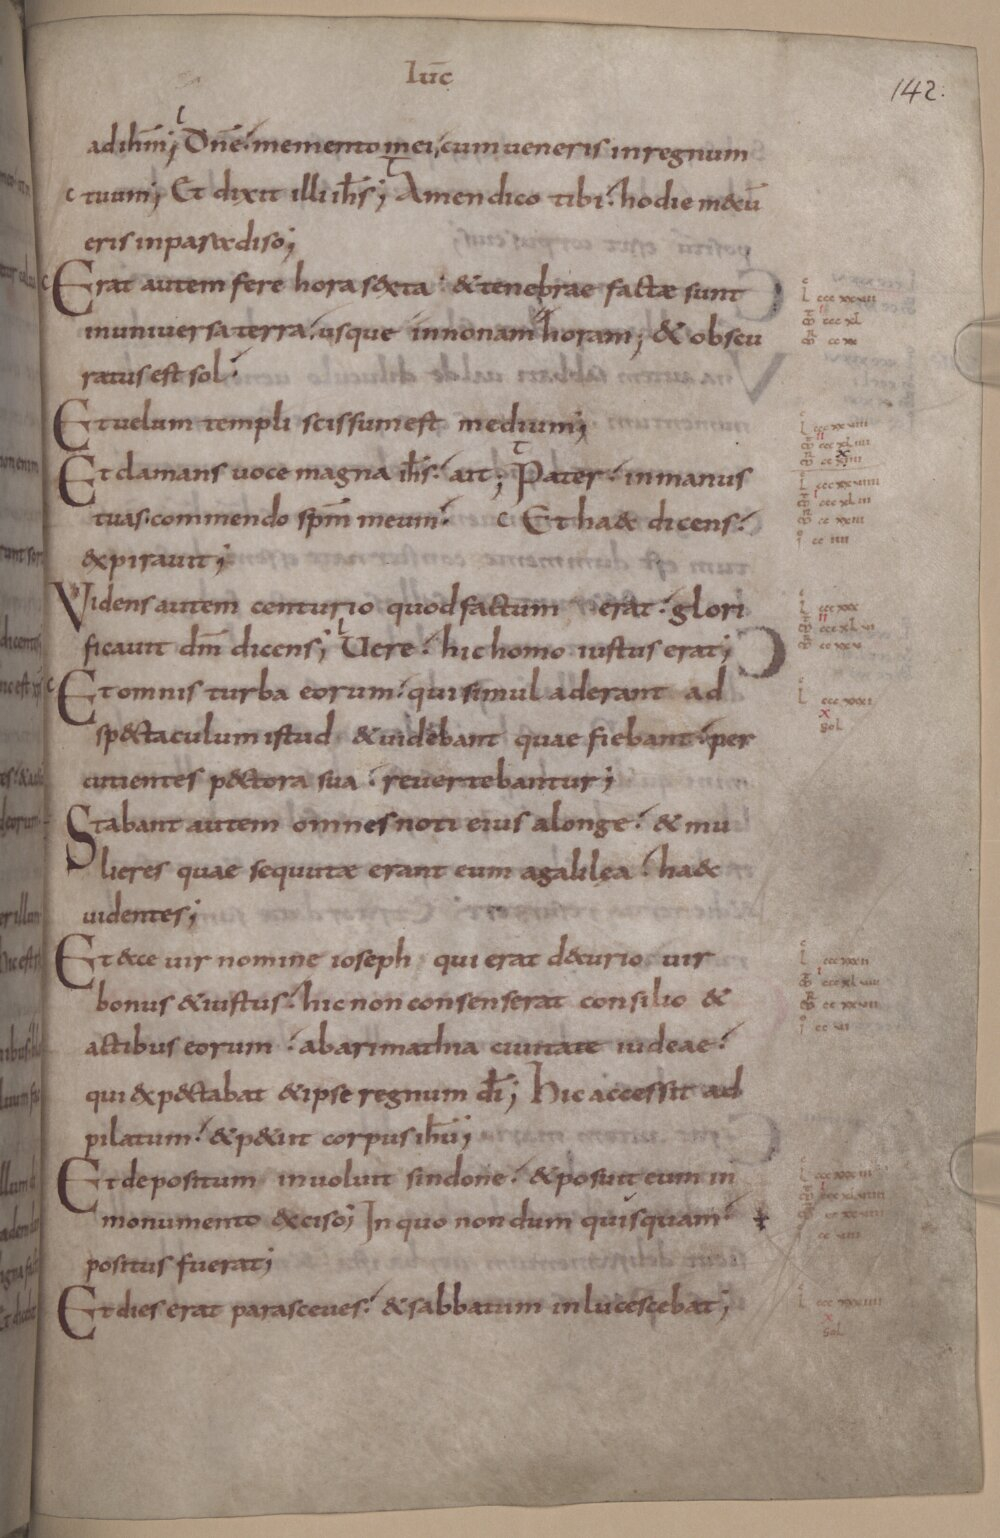 Luc̄
142.
ad ih̄m; Dn̄e. memento mei, cum ueneris in regnum
tuum; Et dixit illi ih̄s; Amen dico tibi. hodie mecū
eris in paradiso;
Erat autem fere hora sexta. & tenebrae factae sunt
in uniuersa terra. usque in nonam horam; & obscu
ratus est sol.
Et uelum templi scissum est medium;
Et clamans uoce magna ih̄s. ait; Pater. in manus
tuas. commendo sp̄m meum. c Et haec dicens.
expirauit;
Videns autem centurio quod factum erat. glori
ficauit dm̄ dicens; Uere. hic homo iustus erat;
Et omnis turba eorum. qui simul aderant ad
sp&taculum istud & uidebant quae fiebant. per
cutientes p&ctora sua. reuertebantur;
Stabant autem omnes noti eius alonge. & mu
lieres quae sequutae erant eum agalilea. haec
uidentes;
Et ecce uir nomine ioseph. qui erat decurio. uir
bonus & iustus. hic non consenserat consilio &
actibus eorum. abarimathia ciuitate iudeae.
qui exp&ctabat & ipse regnum dī; Hic accessit ad
pilatum. & p&iit corpus ih̄u;
Et depositum inuoluit sindone. & posuit eum in
monumento exciso; In quo non dum quisquam.
positus fuerat;
Et dies erat parasceues. & sabbatum inlucescebat;